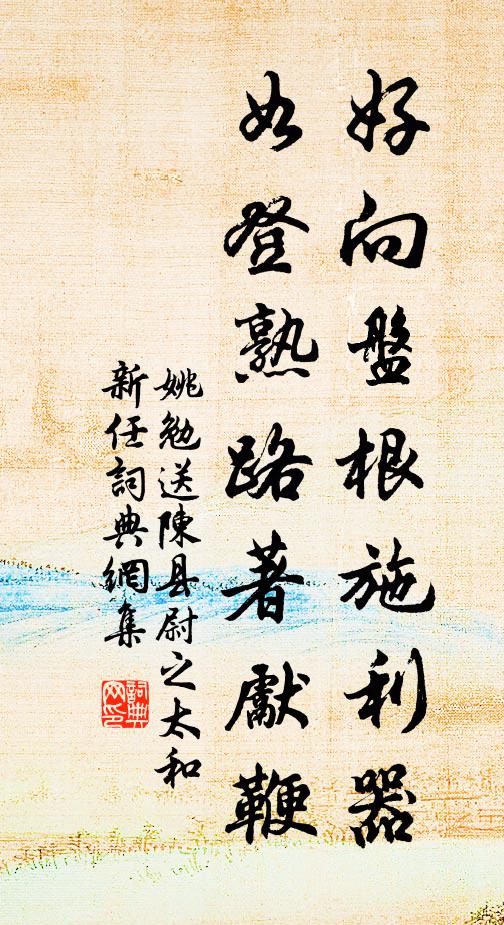 好向盤根施利器
如登熟路著獻鞭
姚勉送陳县尉之太和
新任詞典網集
詞典
网印